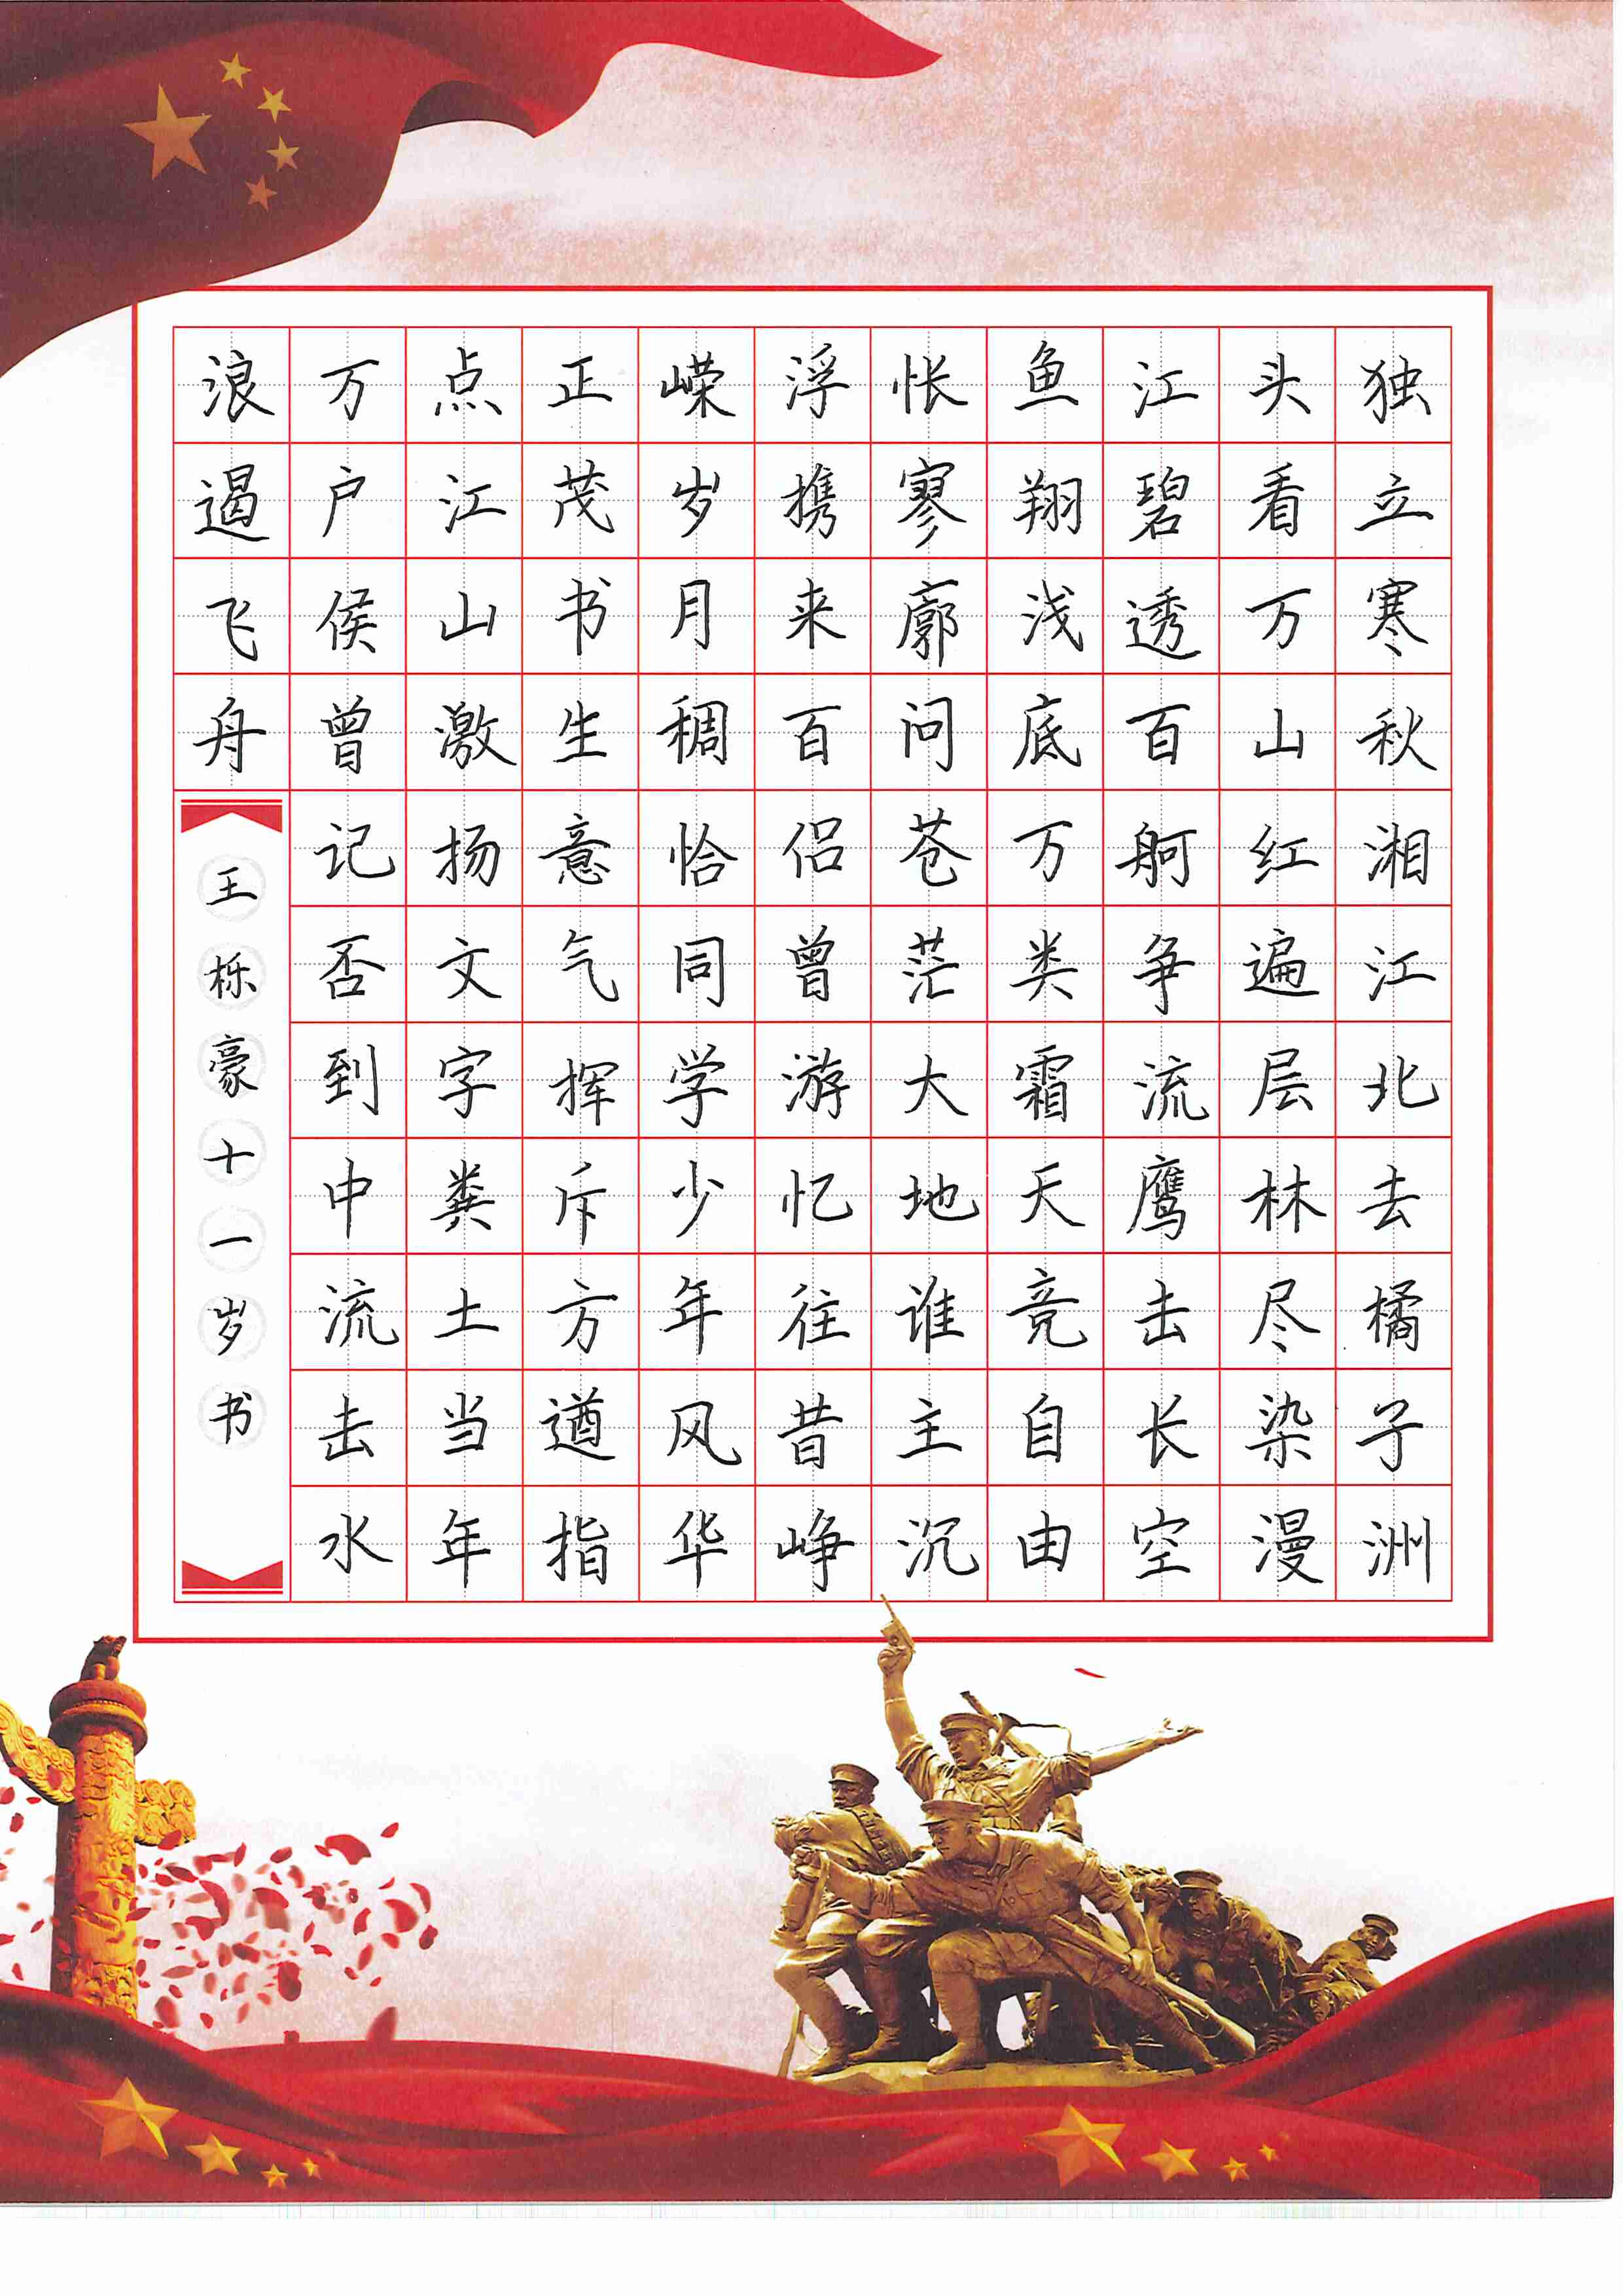 独立寒秋湘江北去橘子洲
头看万山红遍层林尽染漫
江碧透百舸争流鹰击长空
鱼翔浅底万类霜天竞自由
怅寥廓问苍茫大地谁主沉
浮携来百侣曾游忆往昔峥
嵘岁月稠恰同学少年风华
正茂书生意气挥斥方遒指
点江山激扬文字粪土当年
万户侯曾记否到中流击水
浪遏飞舟
王栎豪十一岁书